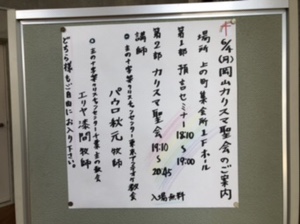 6/4(月)岡山カリスマ聖会のご案内
場所 上の町集会所2Fホール
第1部 預言セミナー 18:10～19:00
第2部 カリスマ聖会 19:10～20:45
入場無料
講師
パウロ秋元牧師
エリヤ湊間牧師
どちら様もご自由にお入り下さい。